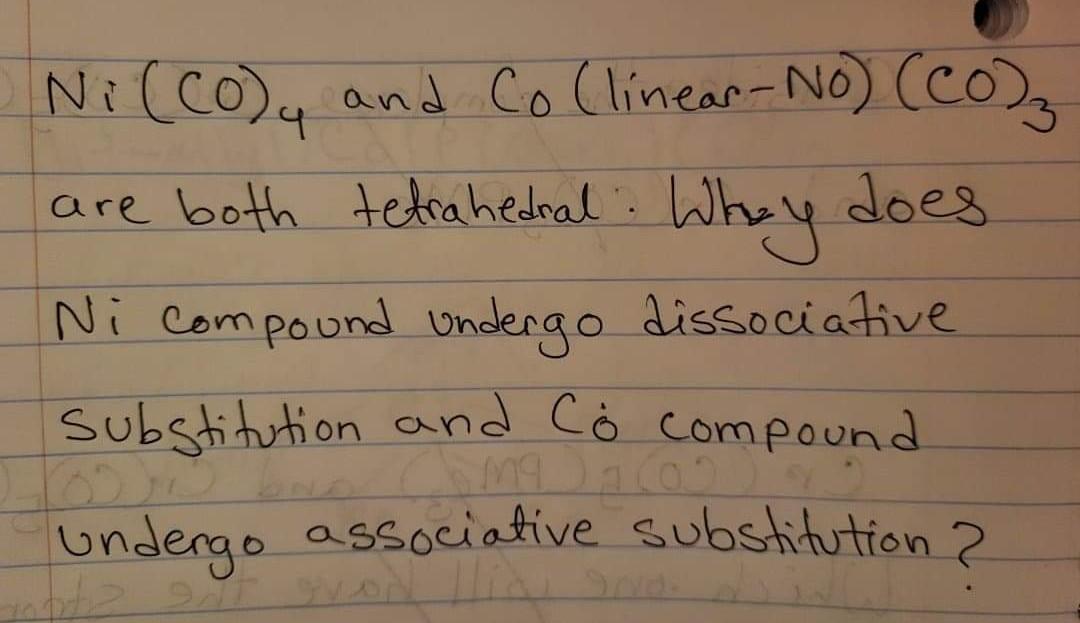 Ni(CO)₄ and Co(linear-NO)(CO)₃
are both tetrahedral. Why does
Ni compound undergo dissociative
substitution and Co compound
undergo associative substitution?